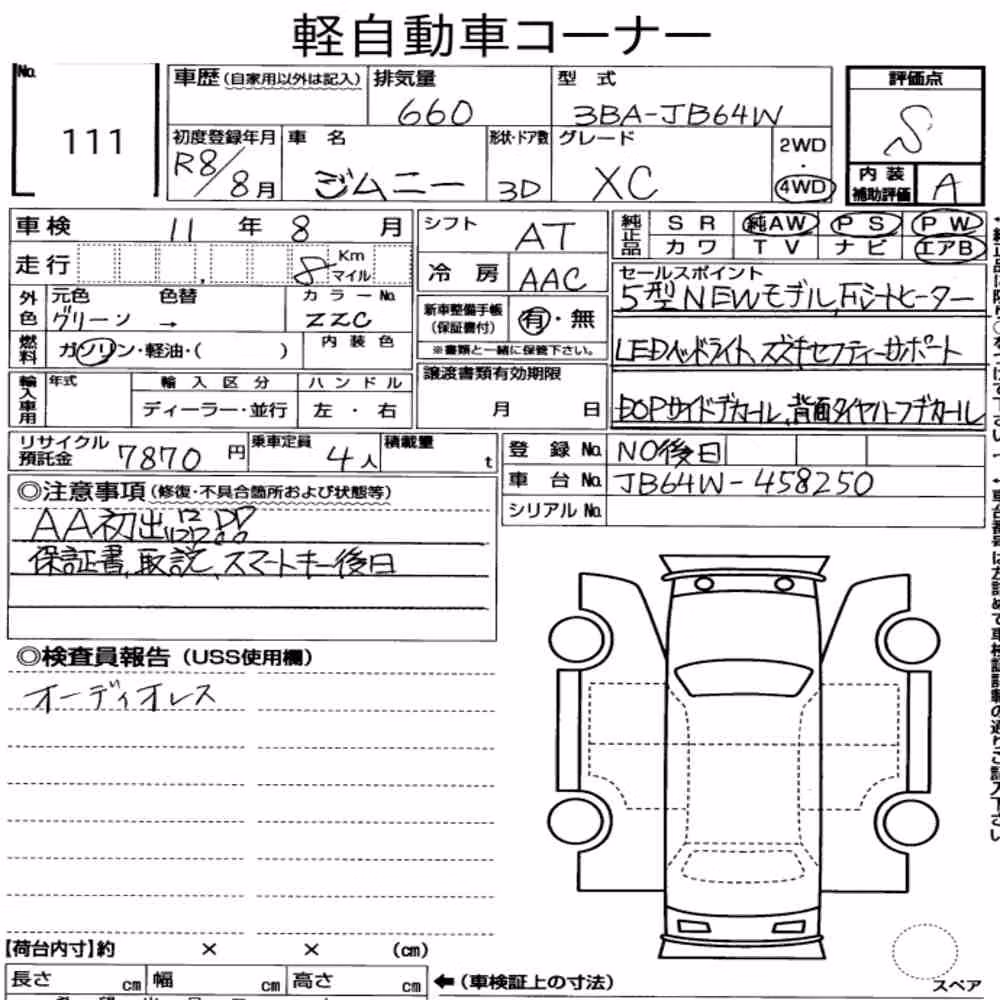 軽自動車コーナー
No. 111
車歴 (自家用以外は記入)
排気量 660
型式 3BA-JB64W
評価点 S
初度登録年月 R8/8月
車名 ジムニー
形状・ドア数 3D
グレード XC
2WD・4WD
内装補助評価 A
車検 11年 8月
シフト AT
純正品 SR 純AW PS PW
カワ TV ナビ エアB
走行 8 Km マイル
冷房 AAC
セールスポイント
5型NEWモデル,Fシートヒーター
LEDヘッドライト,スズキセフティーサポート
DOPサイドデカール,背面タイヤハーフデカール
外色 元色 グリーン → 色替
カラーNo. ZZC
新車整備手帳(保証書付) 有・無
※書類と一緒に保管下さい。
燃料 ガソリン・軽油・( )
内装色
譲渡書類有効期限
月 日
輸入車用 年式 輸入区分 ハンドル
ディーラー・並行 左・右
リサイクル預託金 7870円
乗車定員 4人
積載量 t
登録No. NO後日
車台No. JB64W-458250
シリアルNo.
◎注意事項 (修復・不具合箇所および状態等)
AA初出品
保証書,取説,スマートキー後日
◎検査員報告 (USS使用欄)
オーディオレス
【荷台内寸】約 × × (cm)
長さ cm 幅 cm 高さ cm
← (車検証上の寸法)
スペア